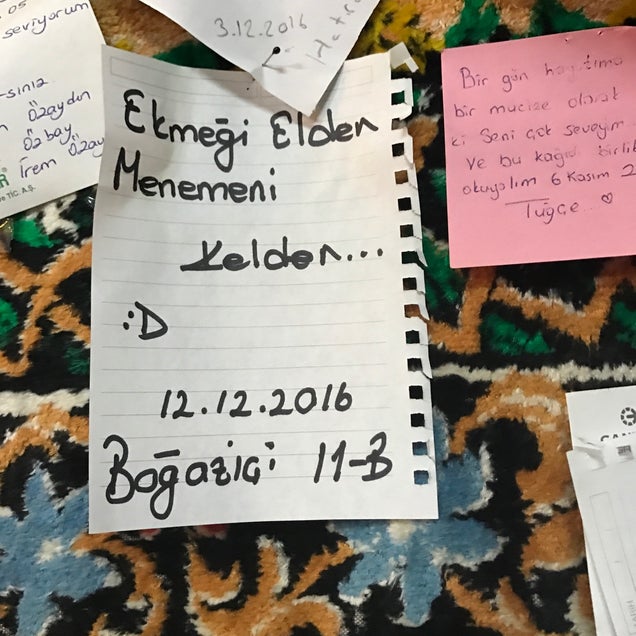 seviyorum
Özaydın
Özbay
İrem Özay
TİC. A.Ş.
3.12.2016
Ekmeği Elden
Menemeni
Kelden...
:D
12.12.2016
Boğaziçi 11-B
Bir gün hayatıma
bir mucize olarak
ki Seni çok seveyim
ve bu kağıdı birlik
okuyalım 6 Kasım 2
Tuğçe ♡